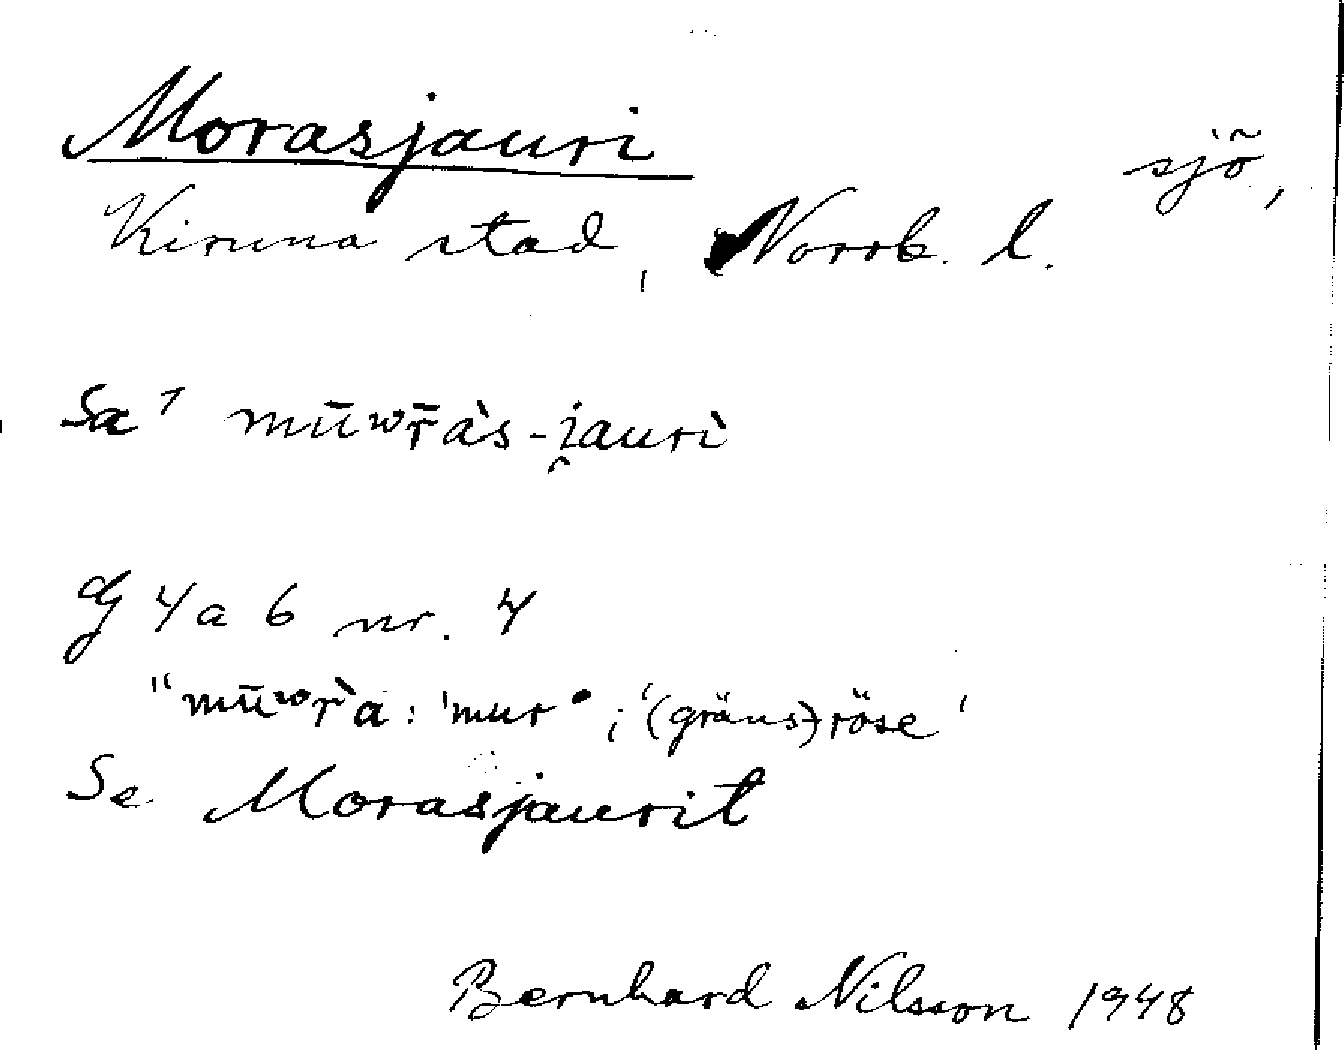 Morasjauri sjö,
Kiruna stad, Norrb. l.
Sa¹ mūʷr̄às-i̯aurì
G 4a 6 nr. 4
"mūʷr̀a: 'mur'; '(gräns)röse'
Se Morasjaurit
Bernhard Nilsson 1948